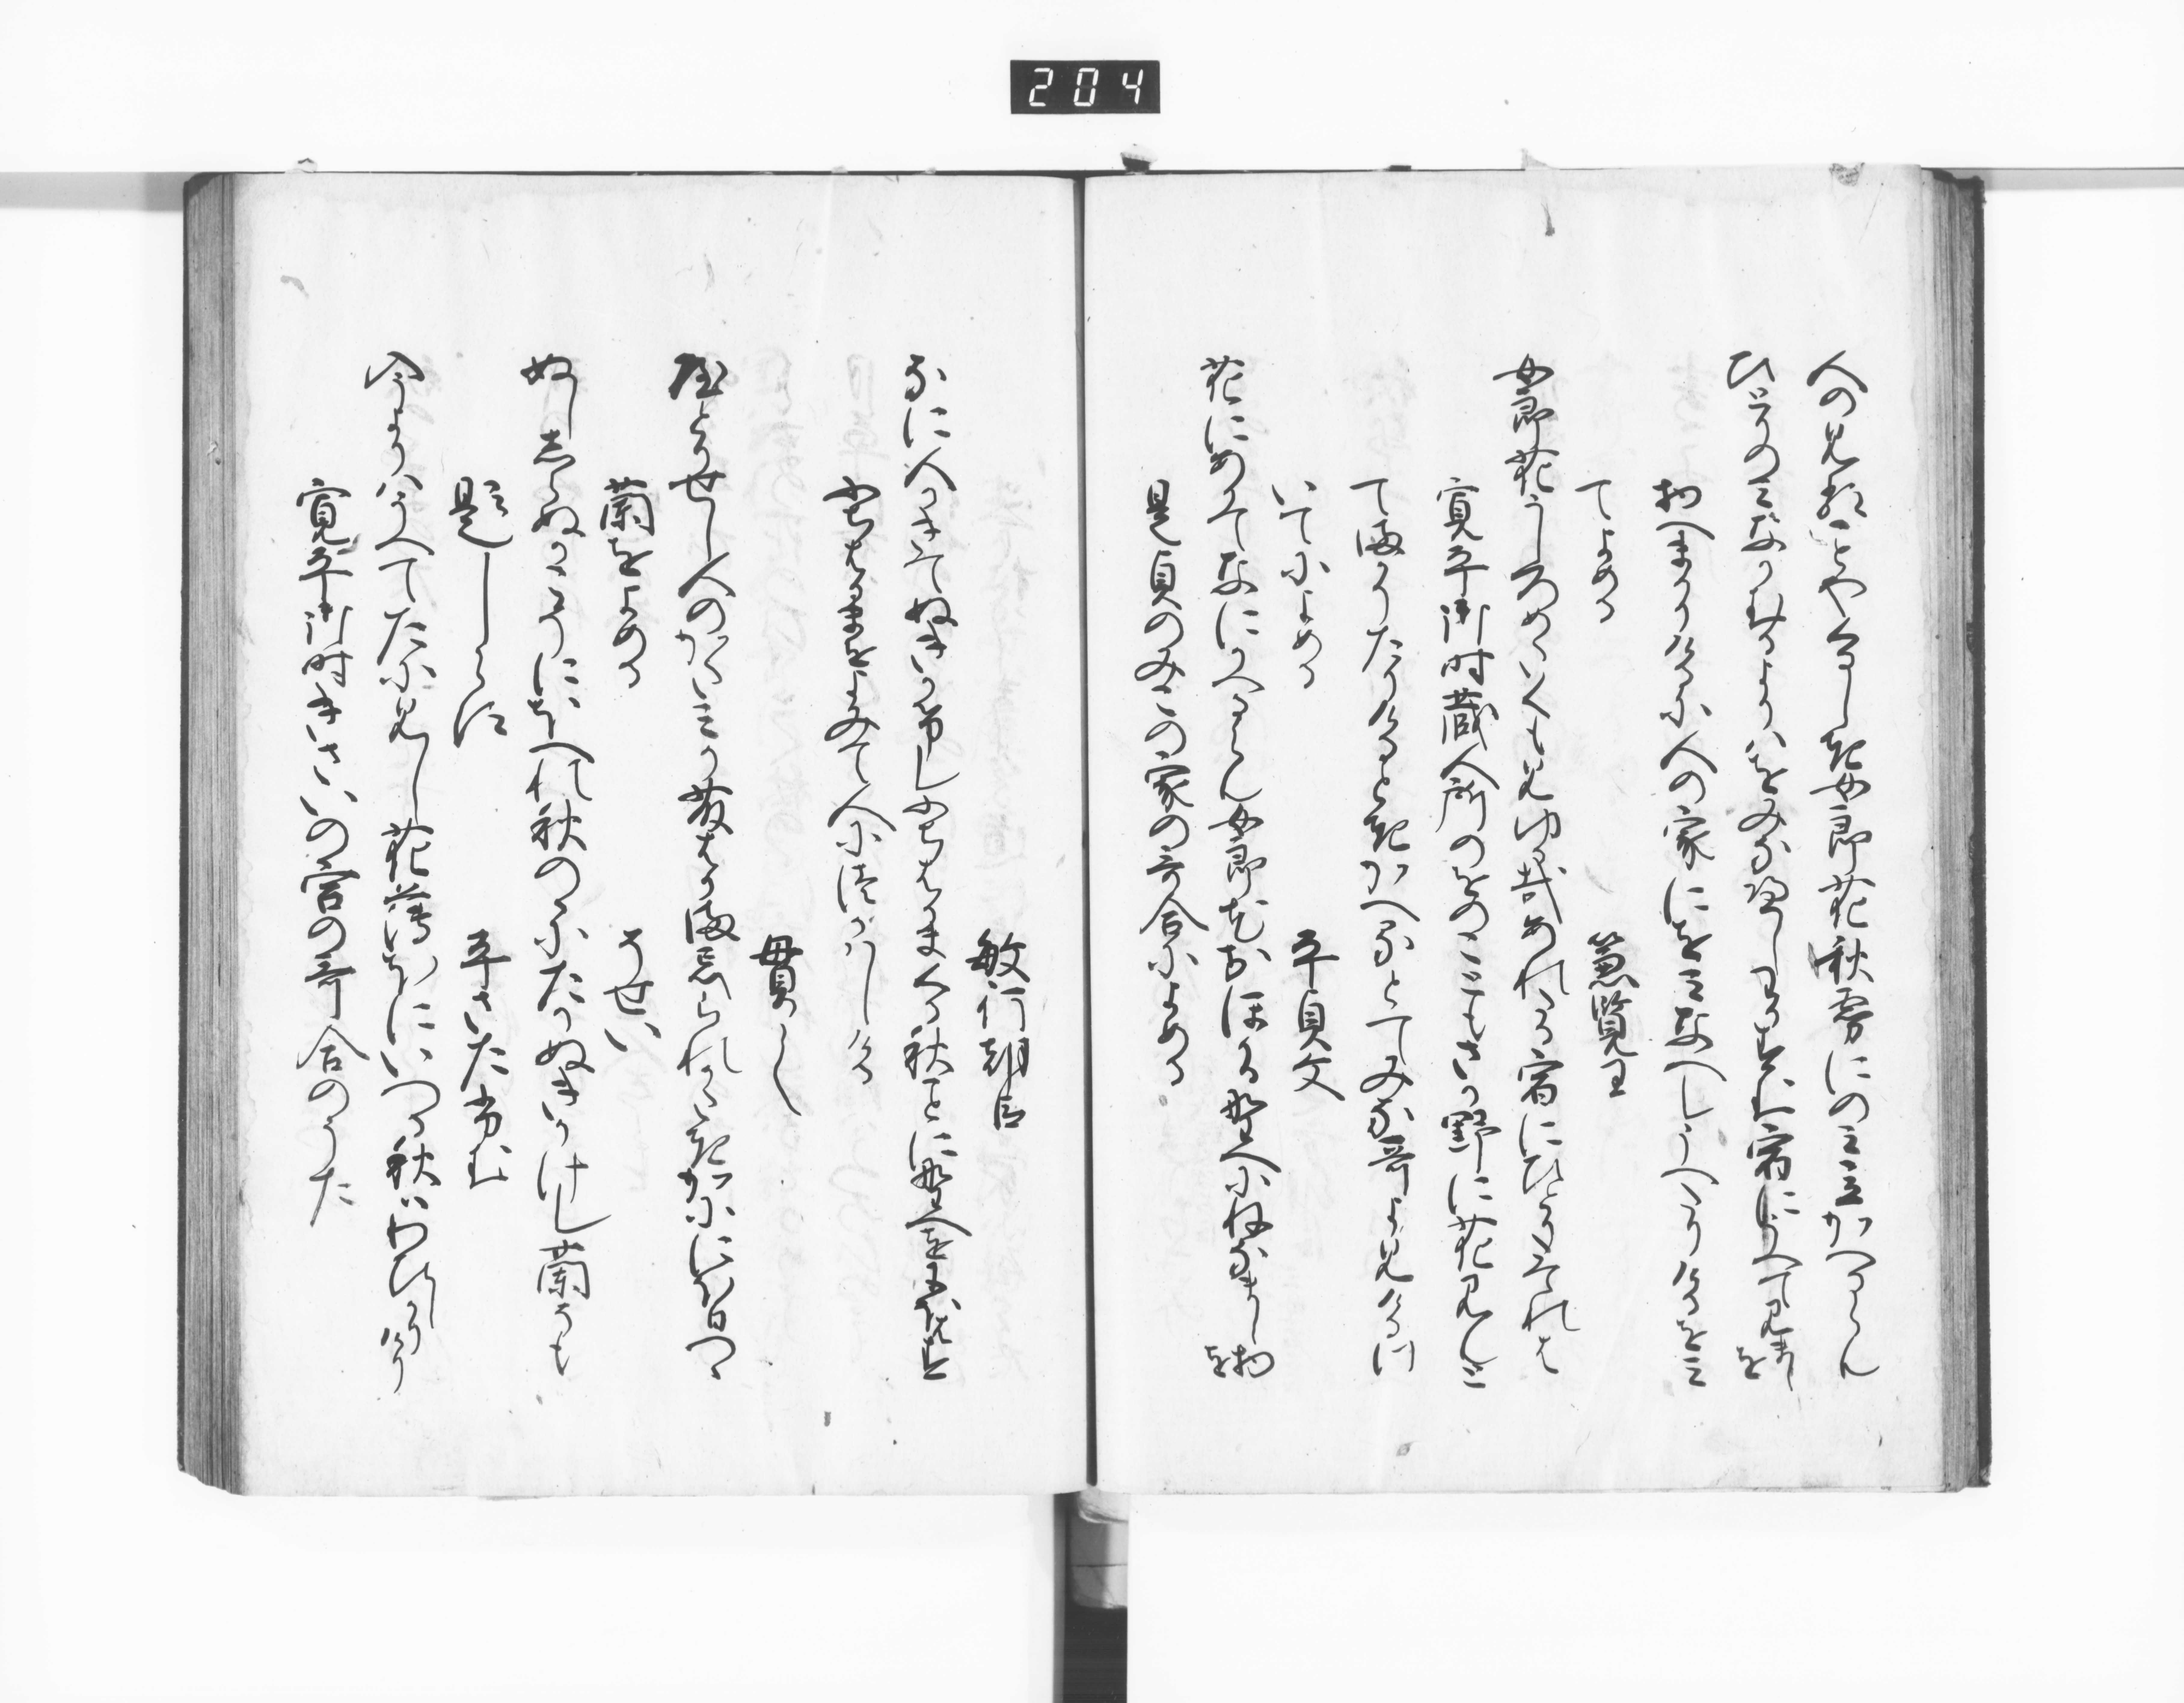 204
人の見ることやくるしき女郎花秋霧にのミ立かくるらん
ひとりのミなかむるよりハをみなへしわか宿にうへて見ましを
物へまかりけるに人の家にをミなへしうへたりけるをミ
てよめる
兼覧王
女郎花うしろめたくも見ゆる哉あれたる宿にひとりたてれは
寛平御時蔵人所のをのこともさか野に花見んと
てまかりたりける時かへるとてみな哥よミける川
いてによめる
平貞文
花にあかてなにかへるらん女郎花おほかる野へにねなまし物を
是貞のみこの家の哥合によめる
敏行朝臣
なに人かきてぬきかけしふちはかまくる秋ことに野へをにほはす
ふちはかまをよみて人に遣ハしける
貫之
屋とりせし人のかたミか藤はかま忘られかたきかににほひつゝ
蘭をよめる
そせい
ぬししらぬかこそにほへれ秋のゝにたかぬきかけし蘭そも
題しらす
平さたふむ
今よりハうへてたにみし花薄ほにいつる秋ハわひしかりけり
寛平御時きさいの宮の哥合のうた